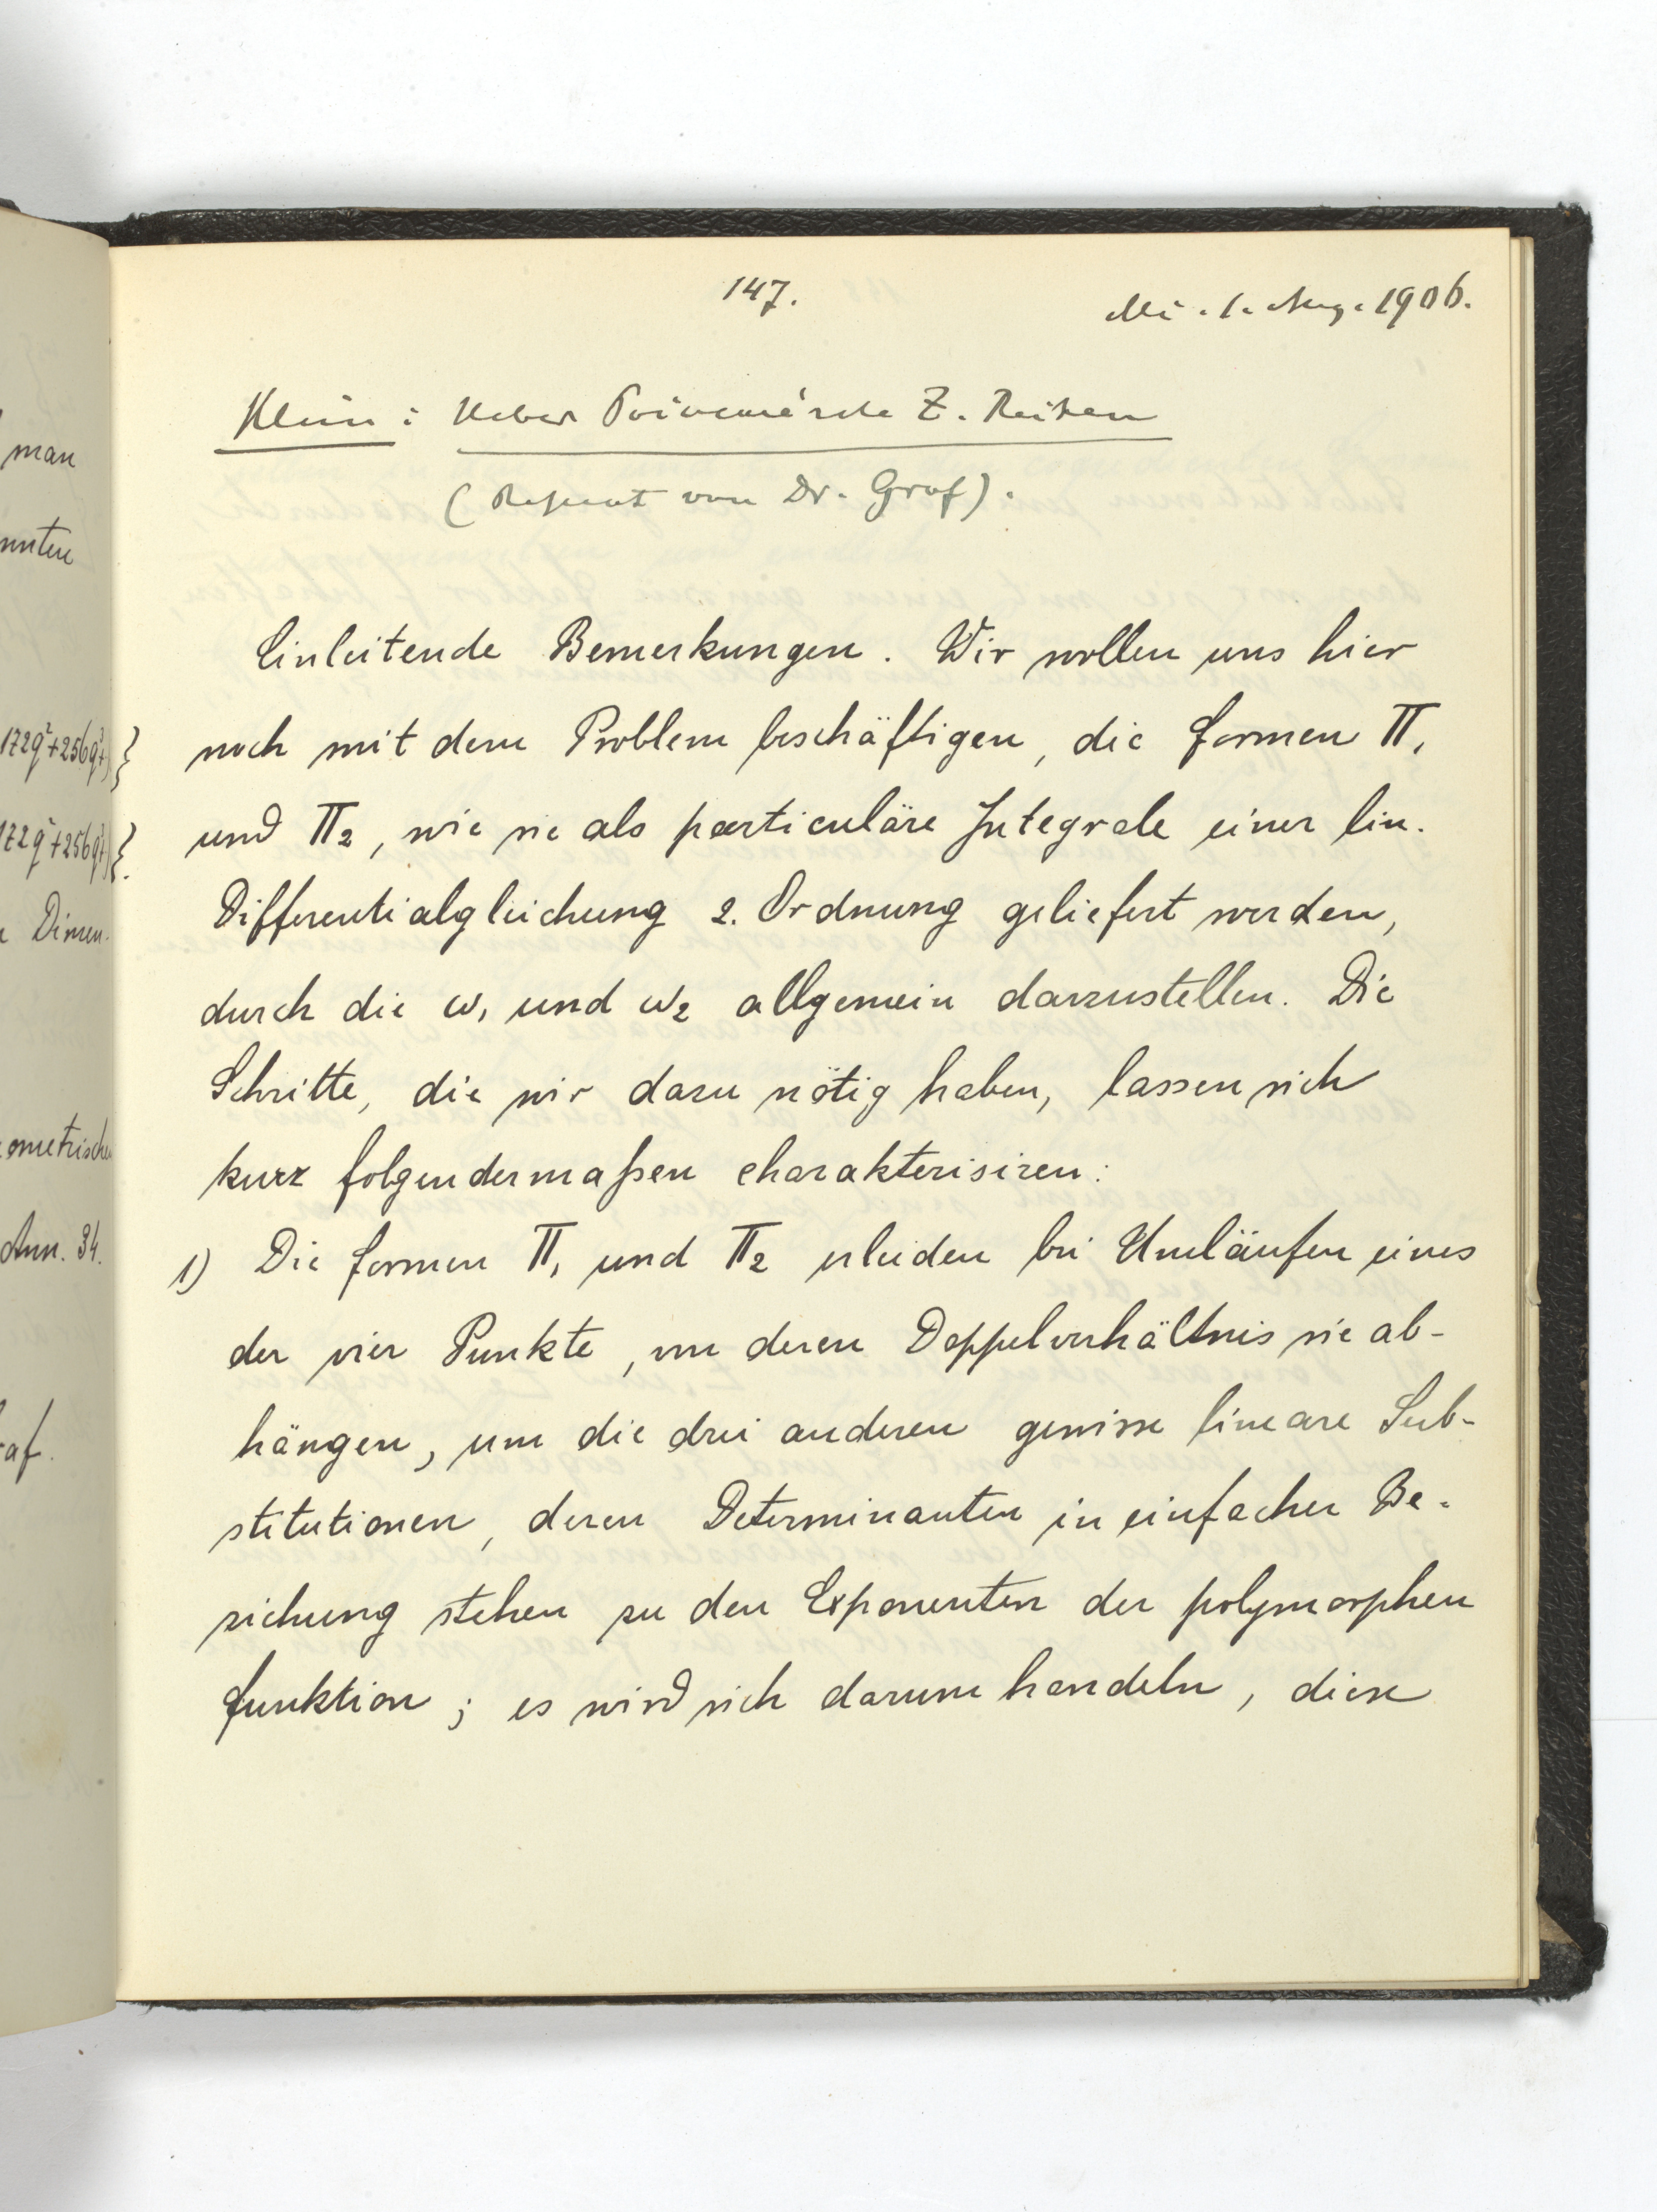 man
nnten
172q²+256q³+
172q²+256q³+
Dimen-
ometrische
Ann. 34.
af.
147.
Mi. 1. Aug. 1906.
Klein: Ueber Poincaré'sche Z. Reihen
(Referat von Dr. Graf).
Einleitende Bemerkungen. Wir wollen uns hier
noch mit dem Problem beschäftigen, die Formen Π₁
und Π₂, wie sie als particuläre Integrale einer lin.
Differentialgleichung 2. Ordnung geliefert werden,
durch die ω₁ und ω₂ allgemein darzustellen. Die
Schritte, die wir dazu nötig haben, lassen sich
kurz folgendermaßen charakterisiren:
1) Die Formen Π₁ und Π₂ erleiden bei Umläufen eines
der vier Punkte, von deren Doppelverhältnis sie ab-
hängen, um die drei anderen gewisse lineare Sub-
stitutionen, deren Determinanten in einfacher Be-
ziehung stehen zu den Exponenten der polymorphen
Funktion; es wird sich darum handeln, diese